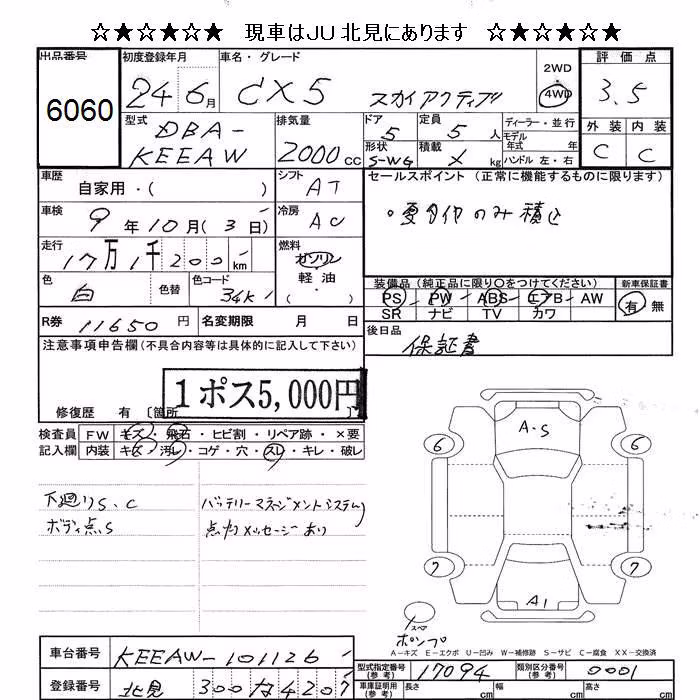 ☆★☆★☆★ 現車はJU北見にあります ☆★☆★☆★
出品番号 初度登録年月 車名・グレード 2WD 評価点
6060 24 6月 CX5 スカイアクティブ 4WD 3.5
型式 DBA- 排気量 ドア 定員 ディーラー・並行 外装 内装
5 5人 モデル年式 年
KEEAW 2000cc 形状 積載 ハンドル 左・右 C C
S-WG × kg
車歴 自家用・( ) シフト AT セールスポイント (正常に機能するものに限ります)
車検 9年10月(3日) 冷房 AC 。夏タイヤのみ積込
走行 17万1千200km 燃料 ガソリン
軽・油
( )
色 白 色替 色コード 34K
装備品(純正品に限り〇をつけてください) 新車保証書
PS PW ABS エアB AW 有 無
SR ナビ TV カワ
R券 11650円 名変期限 月 日 後日品
保証書
注意事項申告欄(不具合内容等は具体的に記入して下さい)
1ポス5,000円
修復歴 有 〔箇所 〕
検査員 FW キズ・飛石・ヒビ割・リペア跡・×要
記入欄 内装 キズ・汚レ・コゲ・穴・スレ・キレ・破レ
A・S
6 6
下廻りS.C バッテリーマネージメントシステム
ボディ点S 点灯メッセージあり
7 7
A1
スペア
ポンプ
A-キズ E-エクボ U-凹み W-補修跡 S-サビ C-腐食 XX-交換済
車台番号 KEEAW-101126 型式指定番号(参考) 17094 類別区分番号(参考) 0001
登録番号 北見 300 な 4207 車庫証明用(参考) 長さ cm 幅 cm 高さ cm